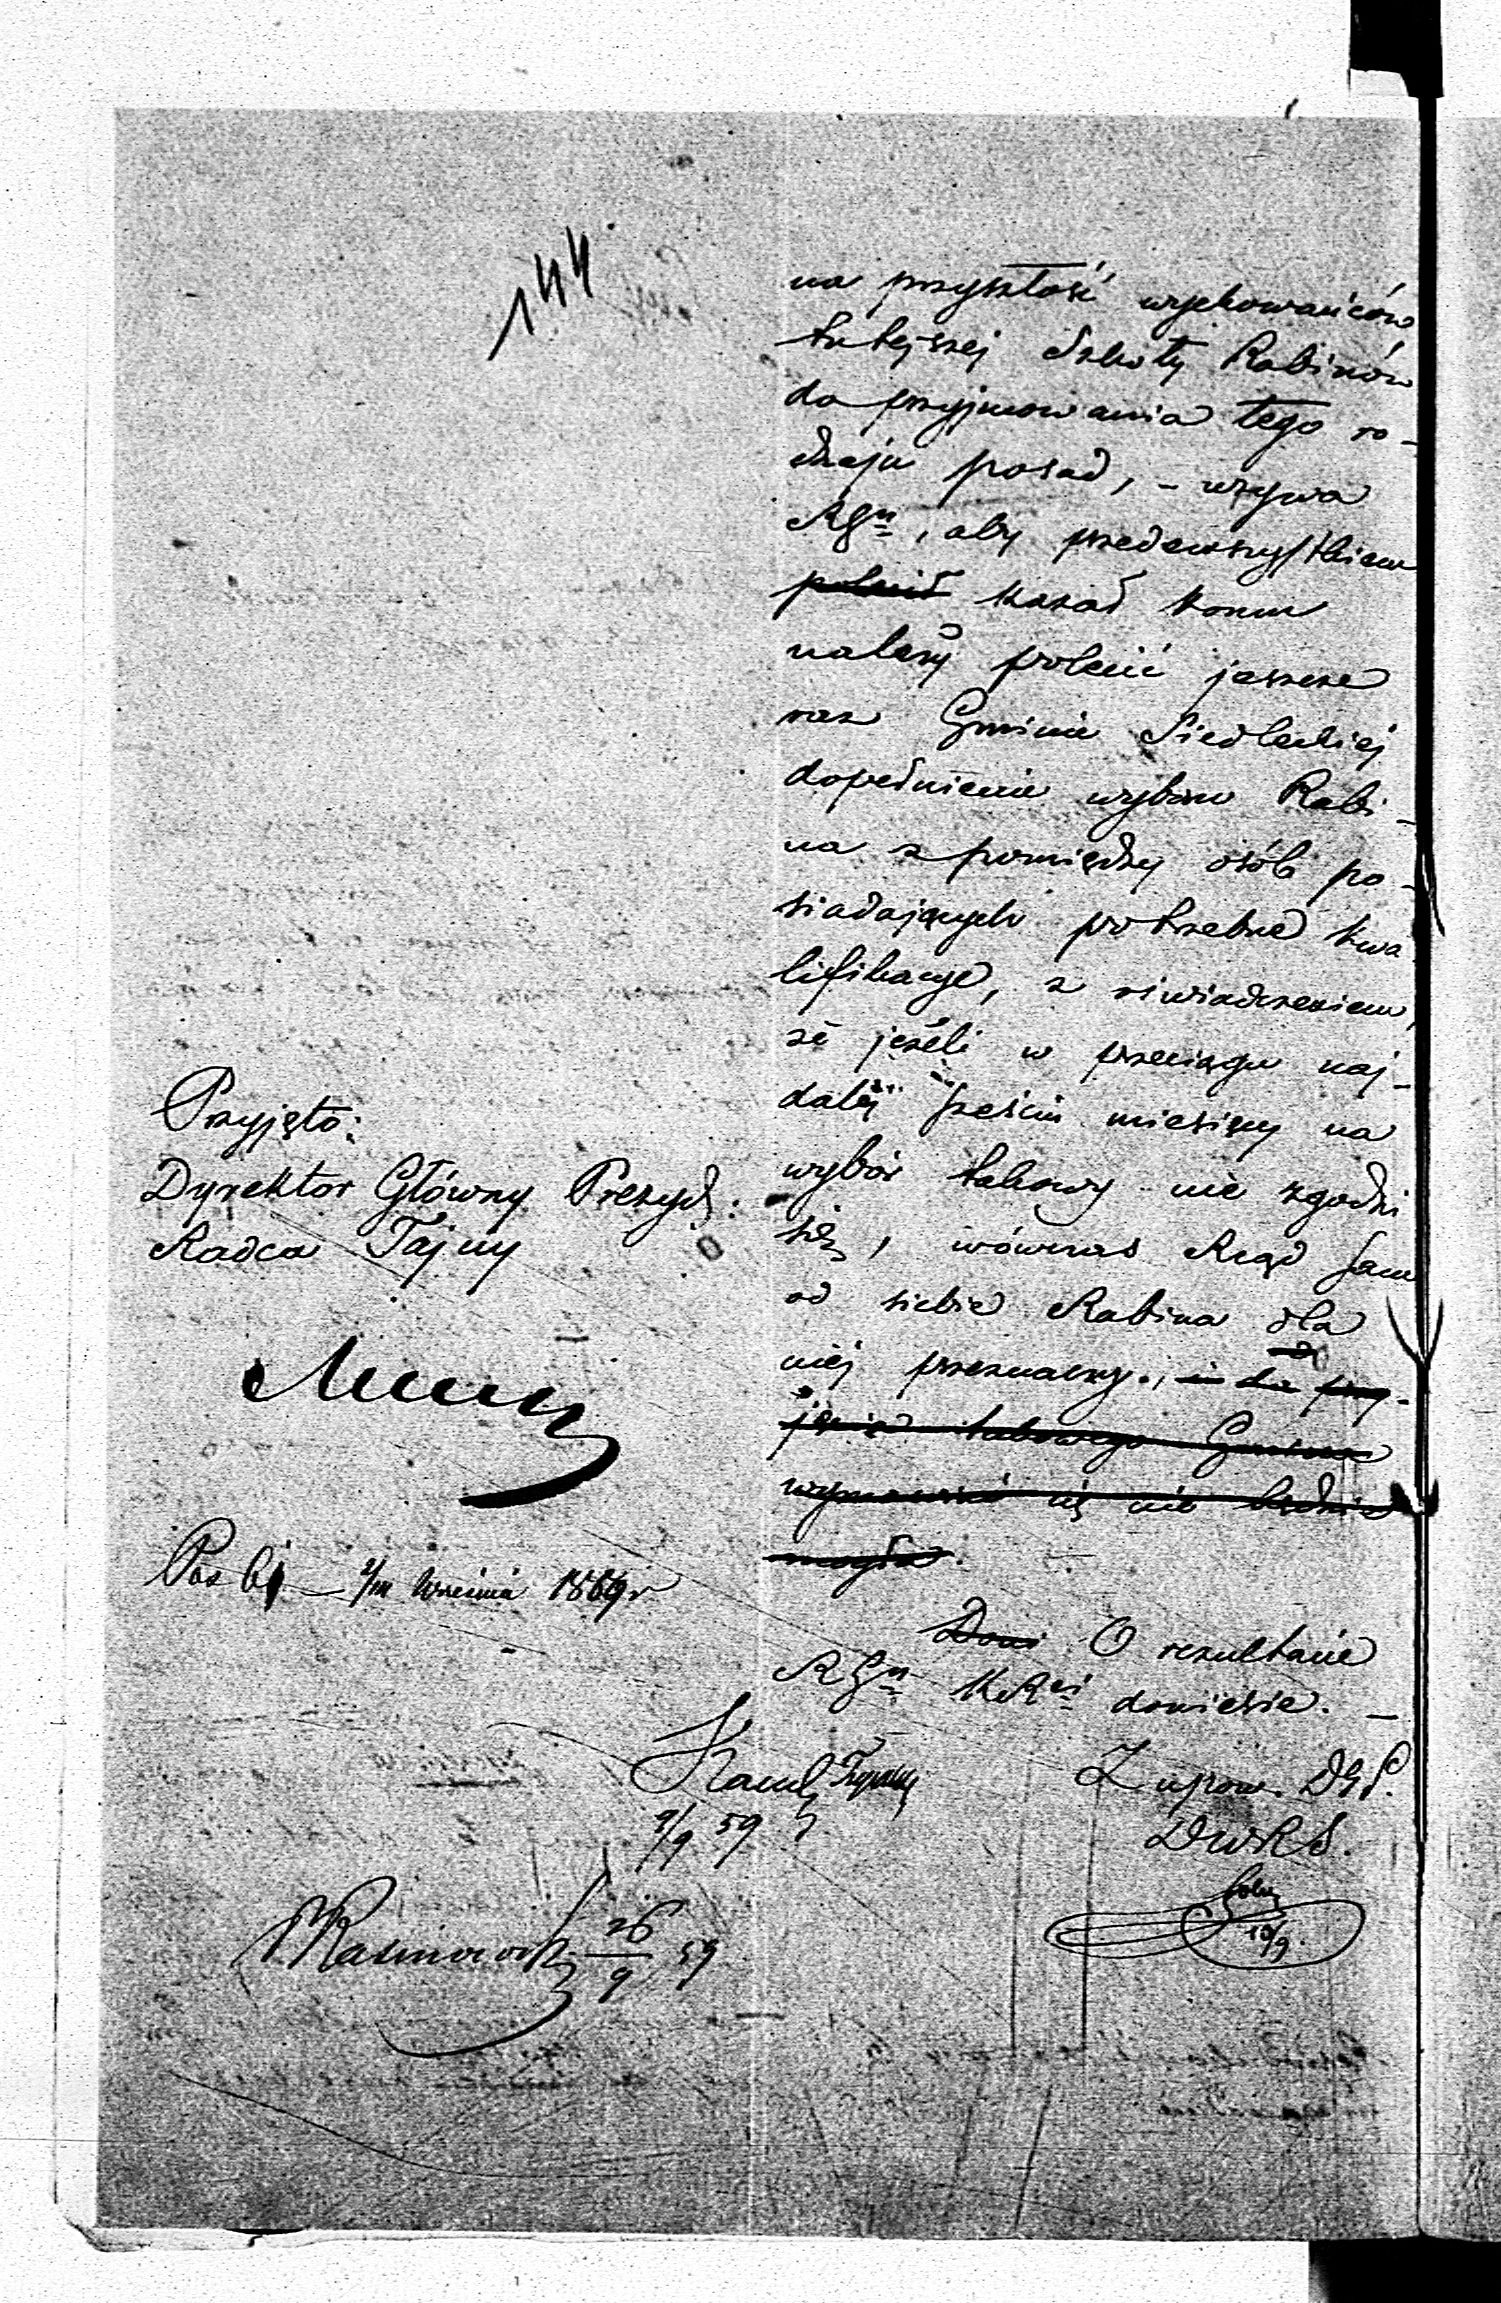 144
na przyszłość wychowańców
tutejszej Szkoły Rabinów
do przyjmowania tego ro-
dzaju posad, - wzywa
RGn, aby przedewszystkiem
polecić kazał komu
należy polecić jeszcze
raz Gminie Siedleckiej
dopełnienie wyboru Rabi-
na z pomiędzy osób po-
siadających potrzebne kwa-
lifikacye, z oświadczeniem,
że jeżeli w przeciągu naj-
daléj sześciu miesięcy na
wybór takowy nie zgodzi
się, wówczas Rząd sam
od siebie Rabina dla
niej przeznaczy., i od przy-
jęcia takowego Gmina
wymawiać się nie będzie
mogła.
O rezultacie
RGn KRSi doniesie. -
Przyjęto:
Dyrektor Główny Prezyd:
Radca Tajny
Września
Z upow. DGP.
DWRS.
9/9 59
10/9.
26/9 59